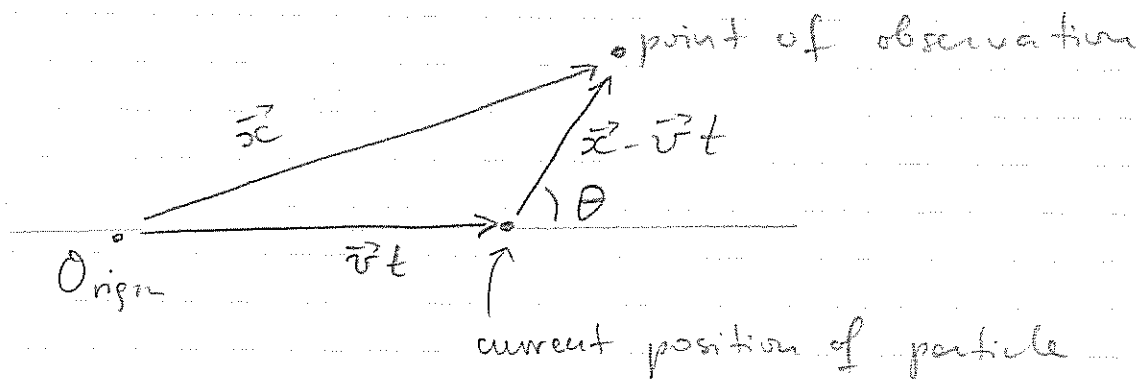 point of observation
x⃗
x⃗ - v⃗ t
θ
v⃗ t
Origin
current position of particle